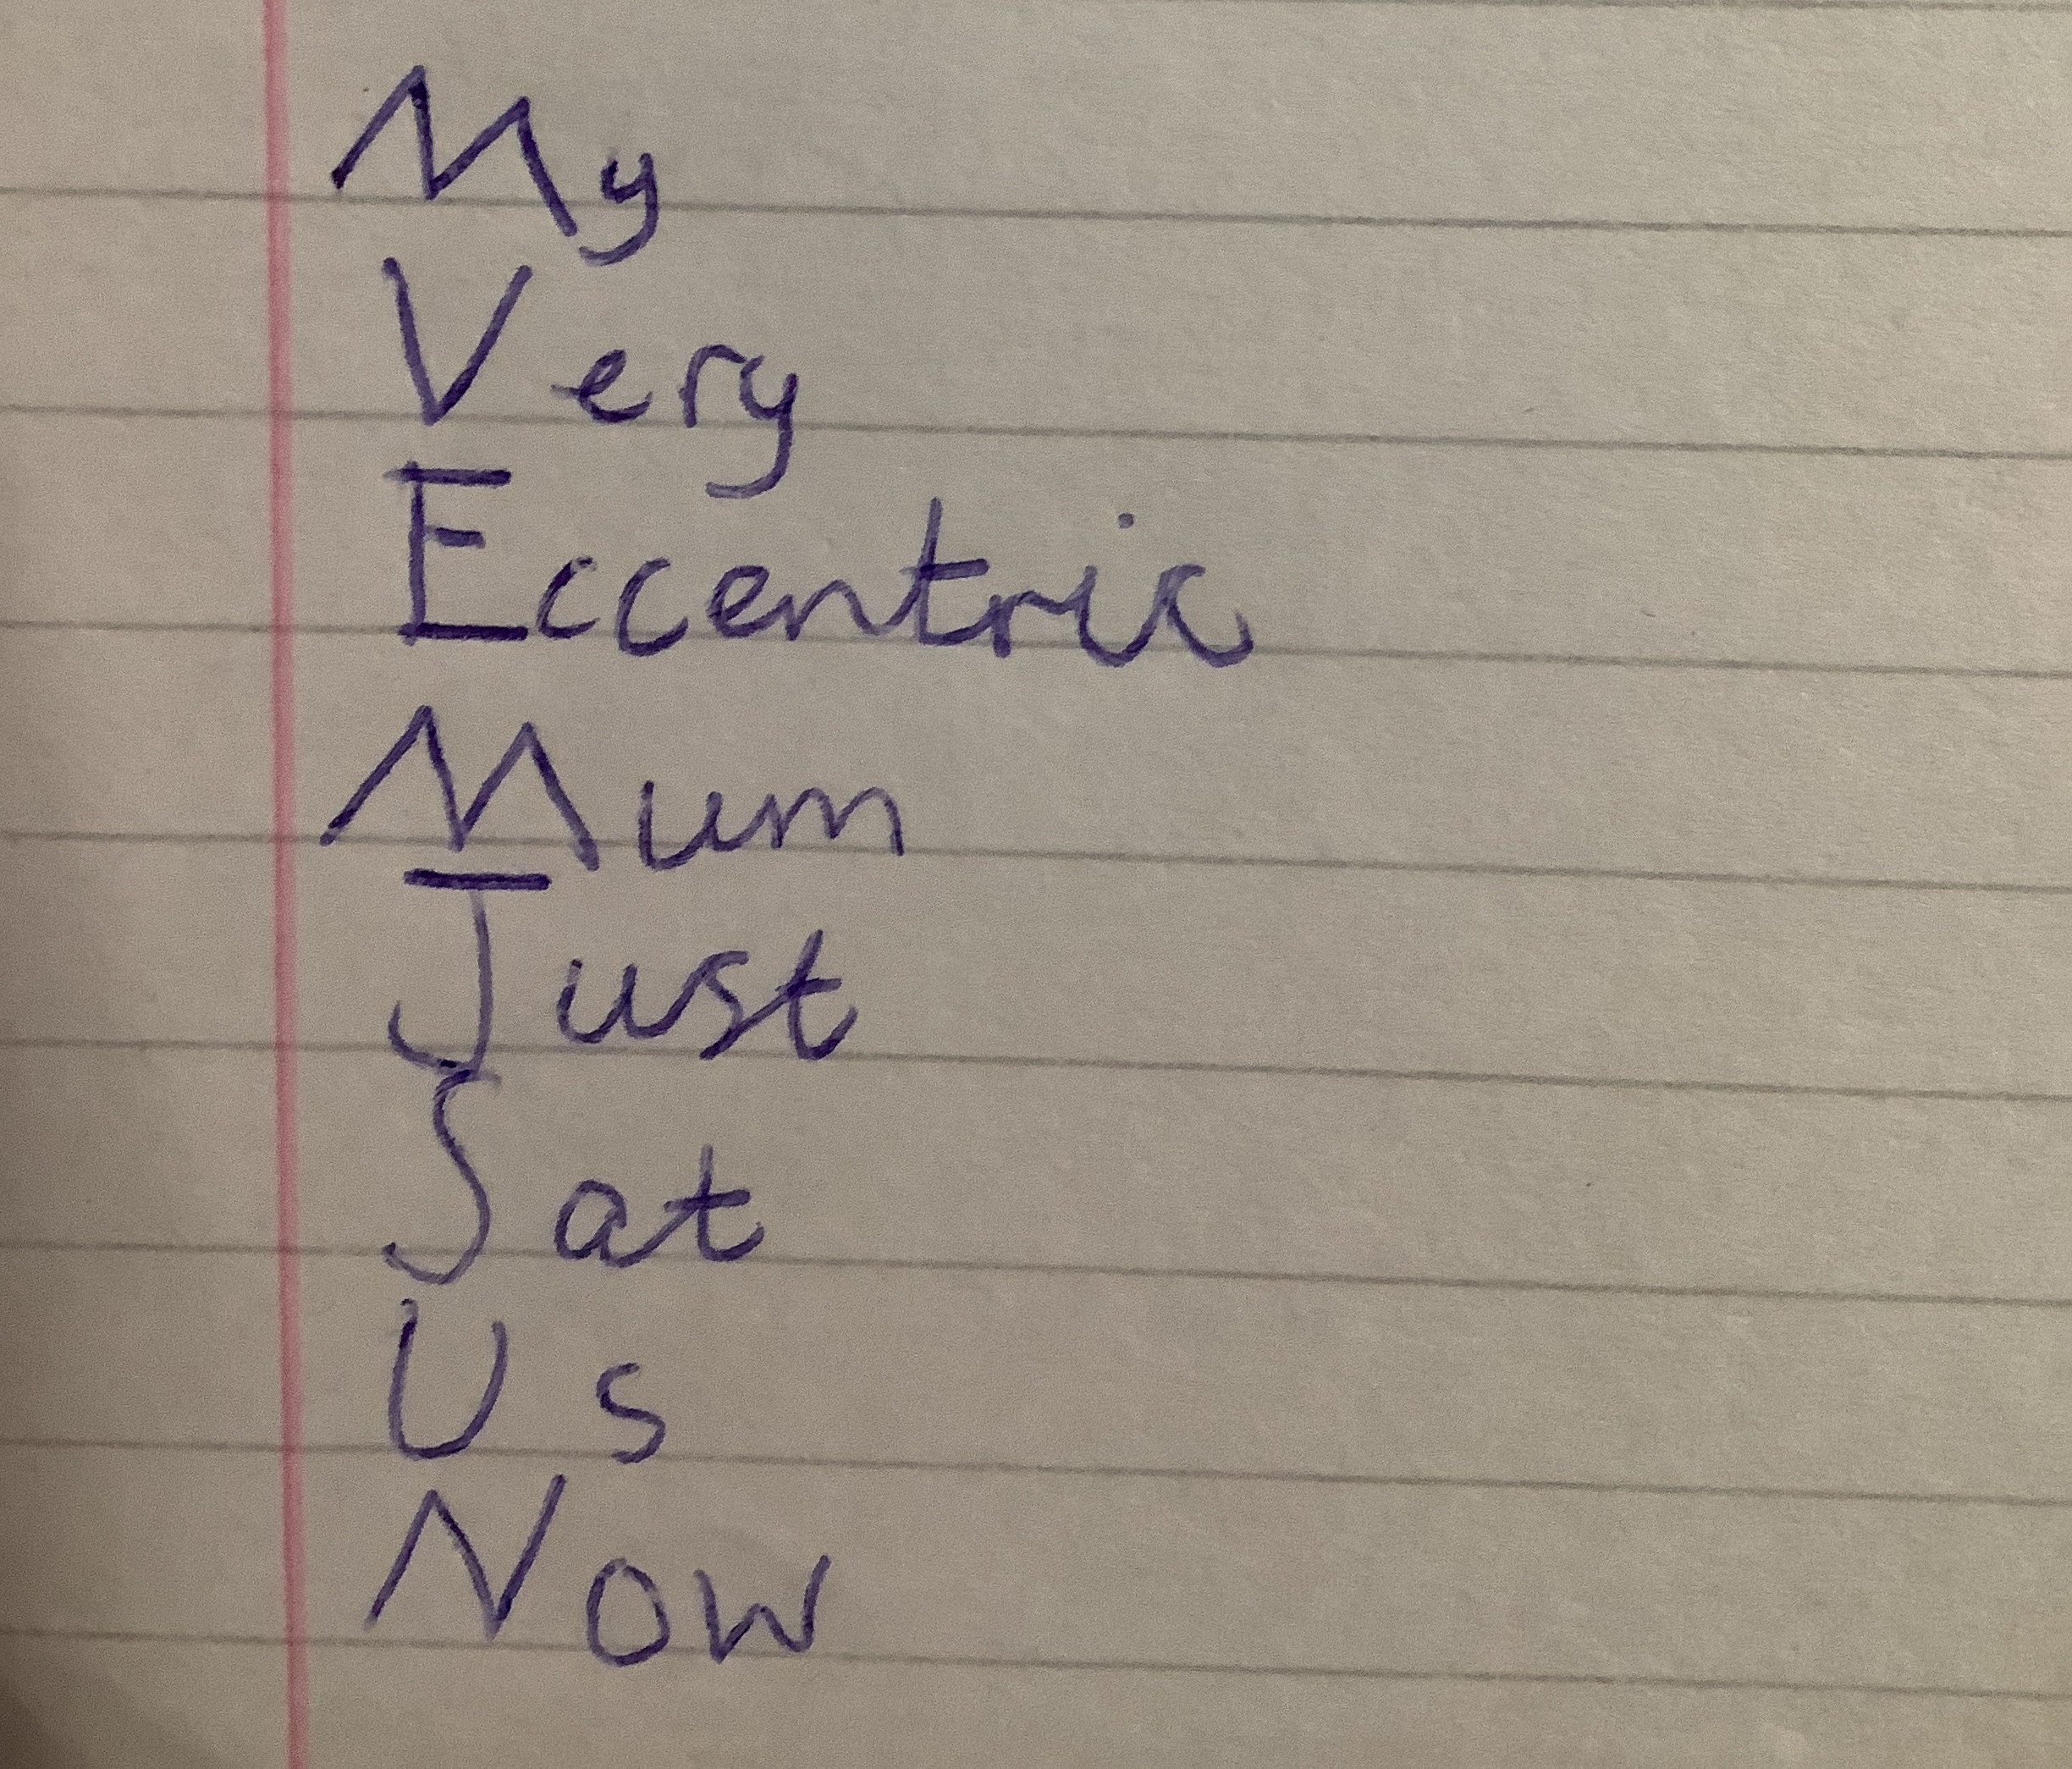 My
Very
Eccentric
Mum
Just
Sat
Us
Now